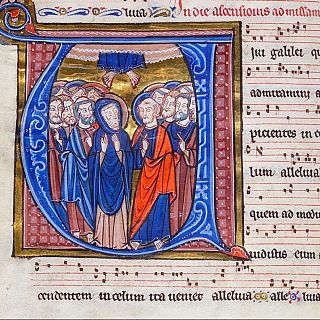 luia. In die ascensionis ad missam
iri galilei
admiramini a
picientes in c
lum alleluia
quem ad mo
udistis eum a
cendentem in celum ita veniet alleluia alleluia